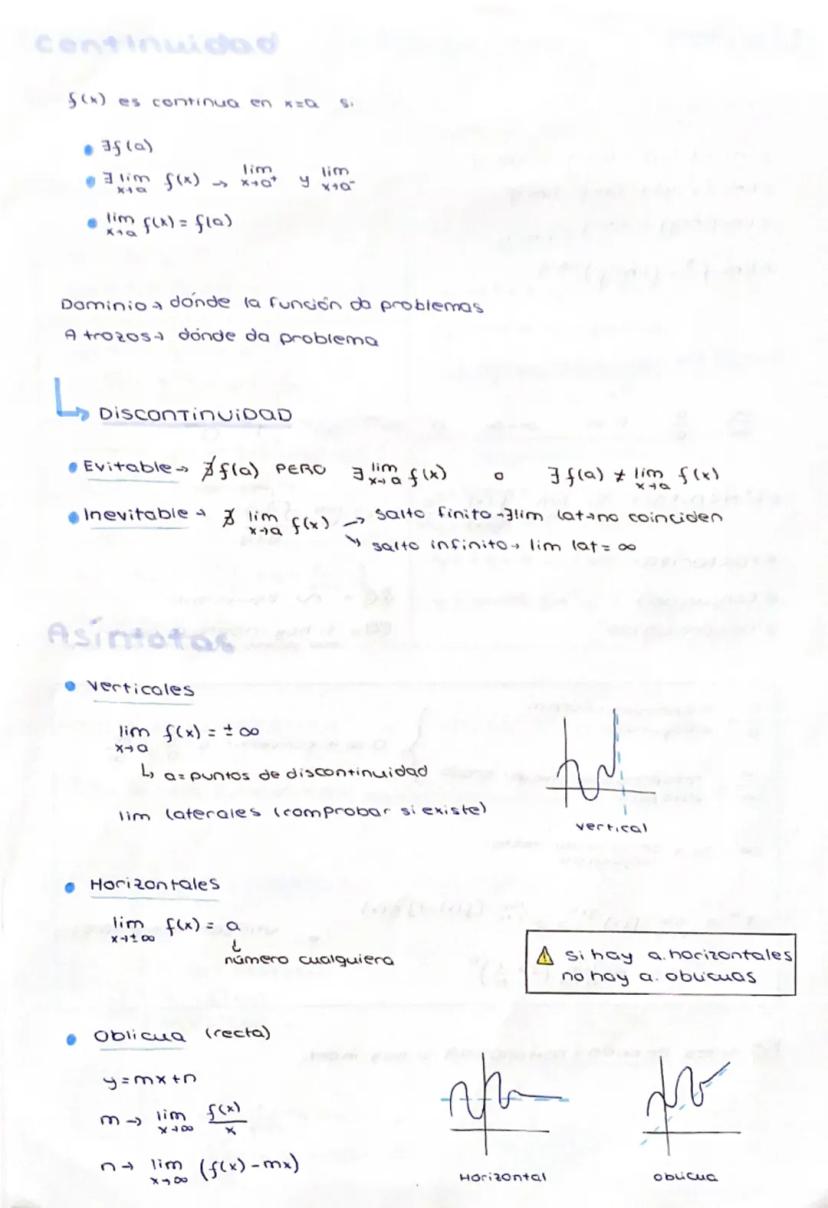 Continuidad
f(x) es continua en x=a si
• ∃f(a)
• ∃ lim x→a f(x) → lim x→a⁺ y lim x→a⁻
• lim x→a f(x) = f(a)
Dominio → dónde la función da problemas
A trozos → dónde da problema
↳ DISCONTINUIDAD
• Evitable → ∄f(a) PERO ∃ lim x→a f(x) o ∃ f(a) ≠ lim x→a f(x)
• Inevitable → ∄ lim x→a f(x) → salto finito → ∃lim lat → no coinciden
↘ salto infinito → lim lat = ∞
Asíntotas
• Verticales
lim x→a f(x) = ± ∞
↳ a = puntos de discontinuidad
lim laterales (comprobar si existe)
vertical
• Horizontales
lim x→±∞ f(x) = a
↓
número cualquiera
⚠ si hay a. horizontales
no hay a. oblicuas
• Oblicua (recta)
y = mx + n
m → lim x→∞ f(x)/x
n → lim x→∞ (f(x) - mx)
Horizontal
oblicua